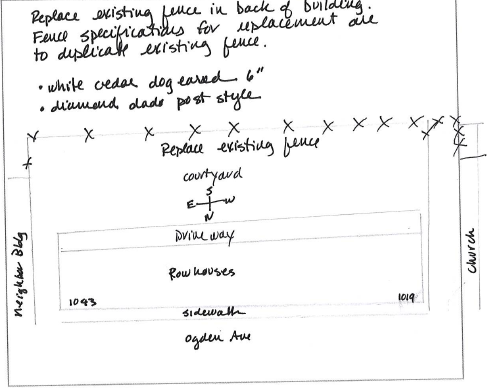 Replace existing fence in back of building.
Fence specifications for replacement are
to duplicate existing fence.
• white cedar dog eared 6"
• diamond dado post style
Replace existing fence
courtyard
S
E W
N
Driveway
Rowhouses
1043 1019
sidewalk
Ogden Ave
Neighbor Bldg
church